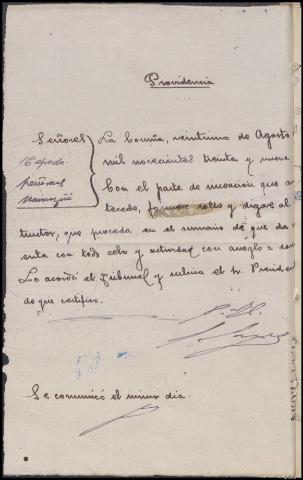 Providencia
Señores
Cepeda
Peñoras
La Coruña, veintiuno de Agosto
mil novecientos treinta y nueve
Con el parte de incoación que an
tecede, fórmese rollo y dígase al
tructor, que proceda en el sumario de que da
enta con todo celo y actividad con arreglo a
Lo acordó el Tribunal y rubrica el Sr. President
de que certifico.
Se comunicó el mismo día.